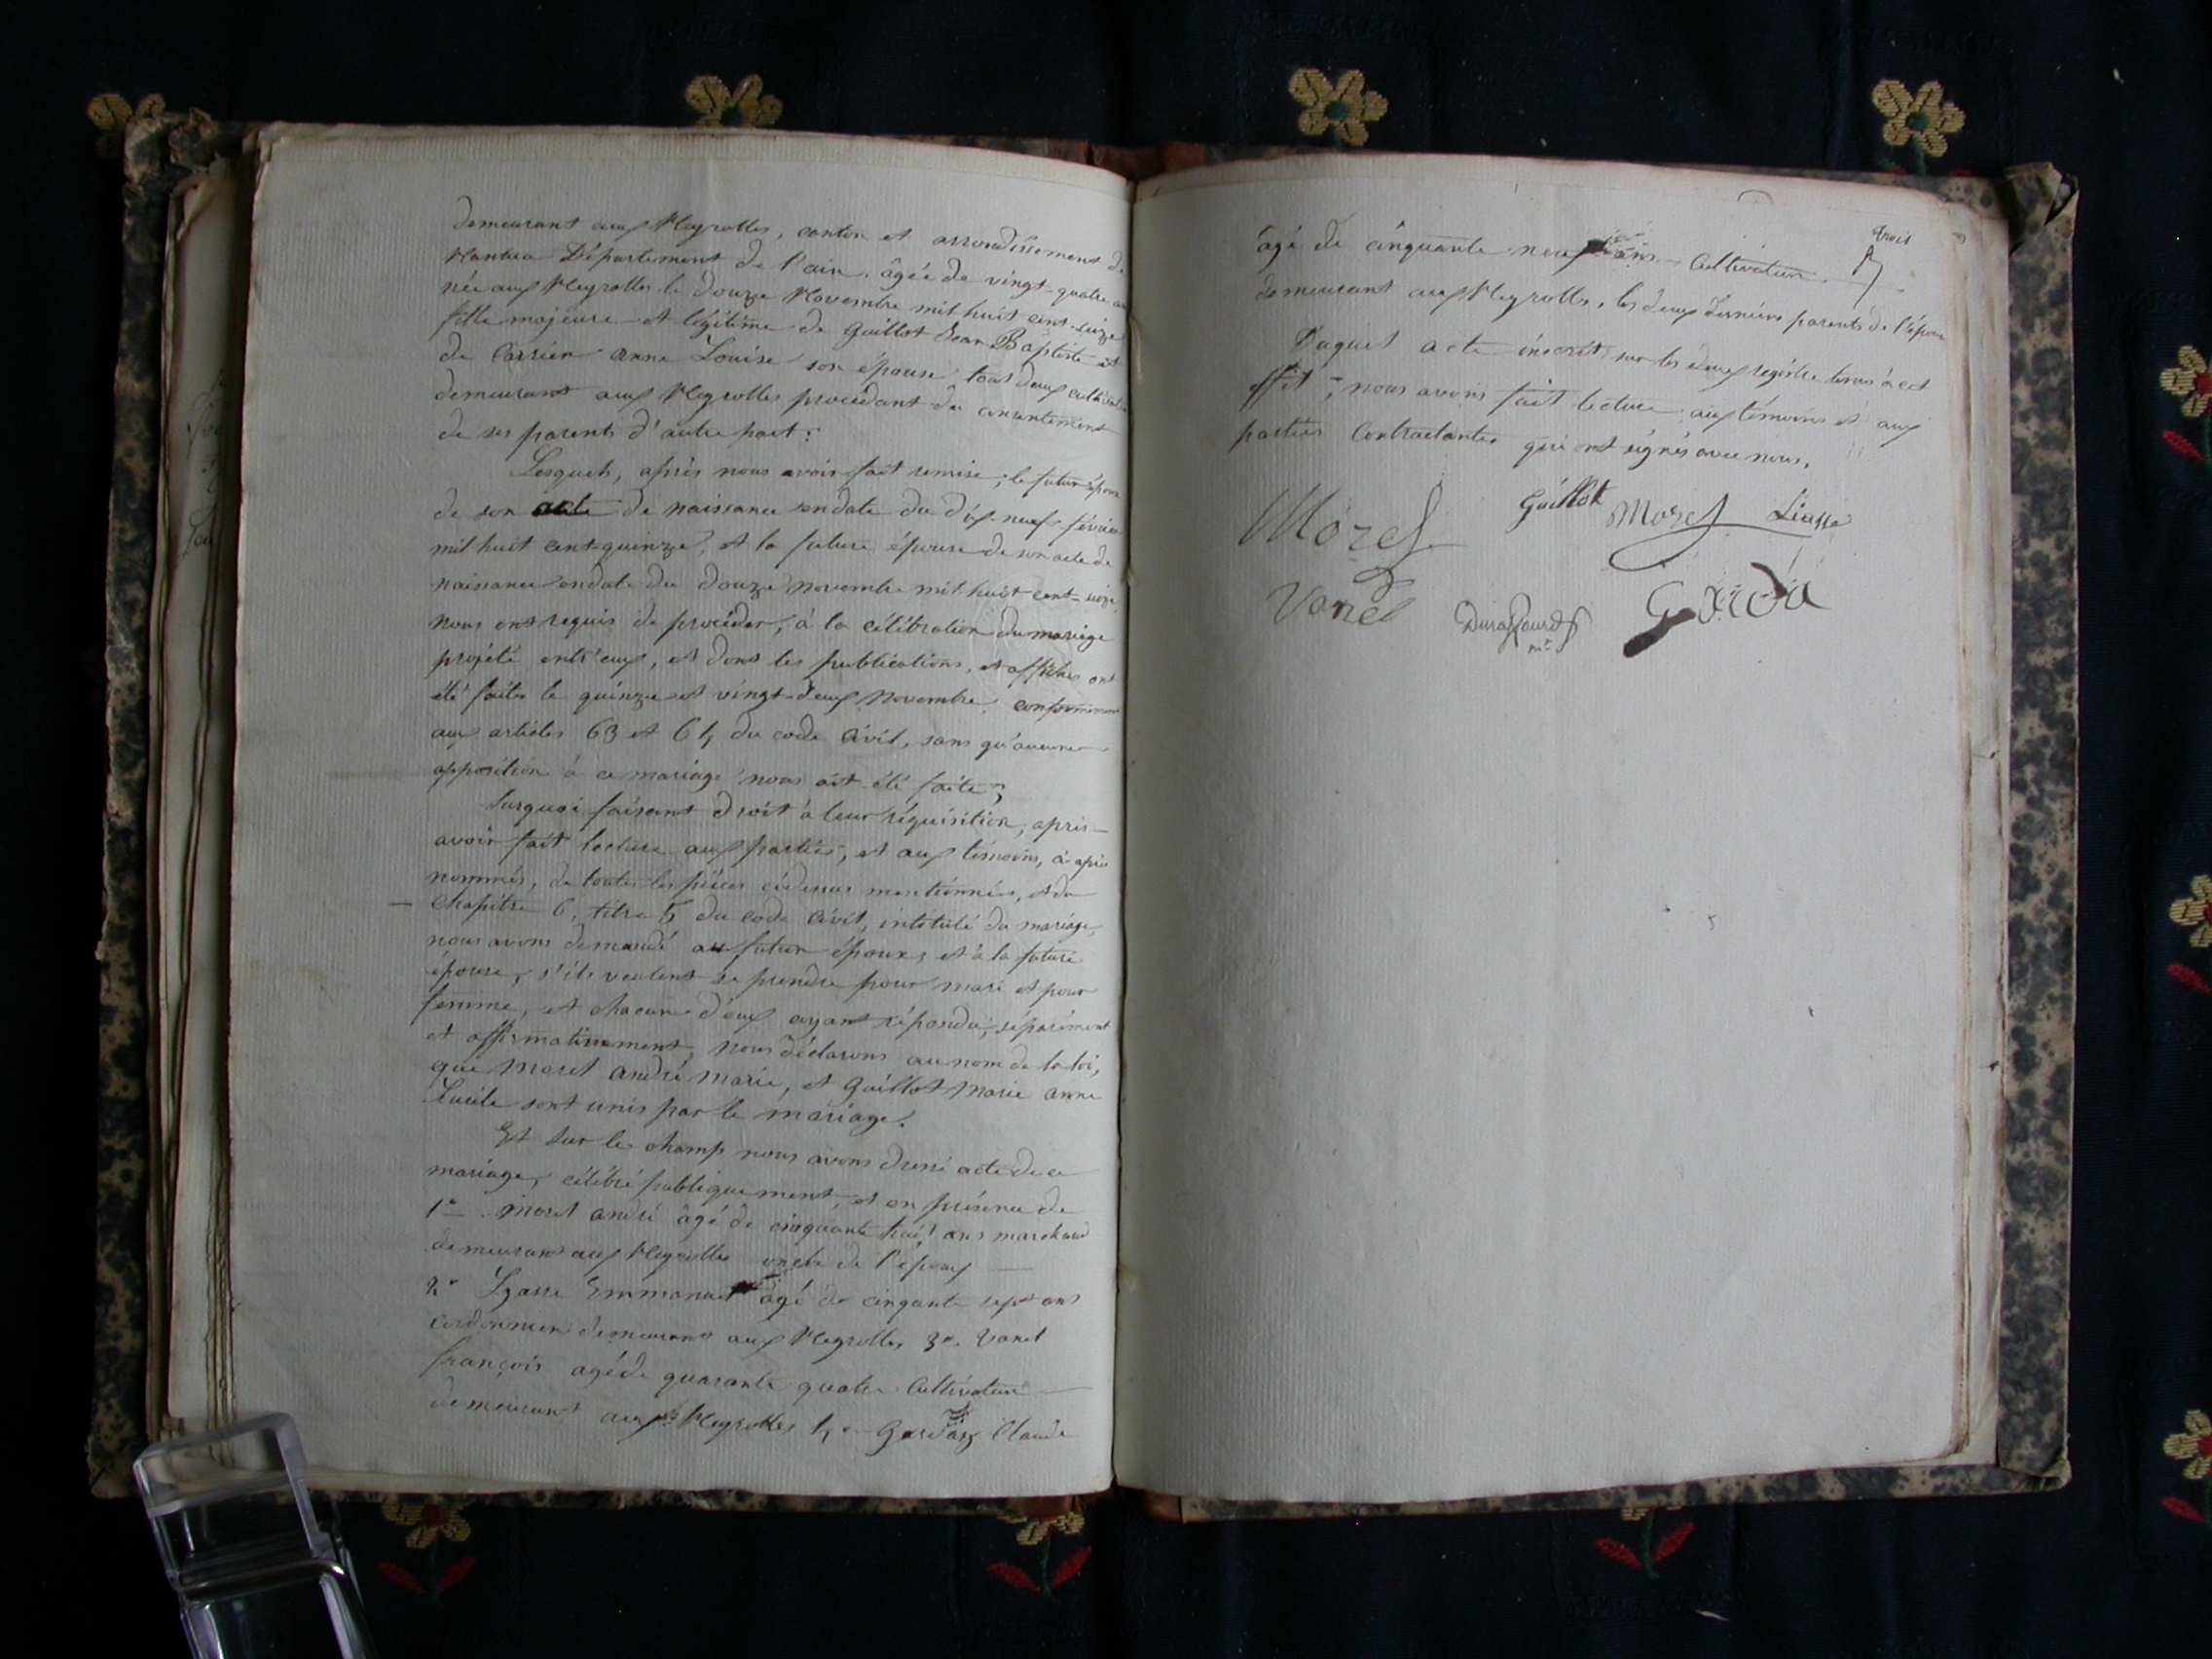 demeurant aux Neyrolles, canton et arrondissement de
Nantua Département de l'ain, âgée de vingt-quatre ans
née aux Neyrolles le douze Novembre mil huit cent-seize
fille majeure et légitime de Guillot Jean Baptiste et
de Carrier anne Louise son épouse tous deux
demeurant aux Neyrolles procédant du consentement
de ses parents d'autre part :
Lesquels, après nous avoir fait remise ; le futur époux
de son acte de naissance en date du dix-neuf février
mil huit cent-quinze, et la future épouse de son acte de
naissance en date du douze novembre mil huit cent-seize
nous ont requis de procéder, à la célébration du mariage
projeté entr'eux, et dont les publications, et affiches ont
été faites le quinze et vingt-deux Novembre, conformément
aux articles 63 et 64 du code civil, sans qu'aucune
opposition à ce mariage nous ait été faite ;
Surquoi faisant droit à leur réquisition, après
avoir fait lecture aux parties, et aux témoins, ci-après
nommés, de toutes les pièces cidessus mentionnées, et du
chapitre 6, titre 5 du code civil, intitulé du mariage,
nous avons demandé au futur époux, et à la future
épouse, s'ils veulent se prendre pour mari et pour
femme, et chacun d'eux ayant répondu, séparément
et affirmativement, nous déclarons au nom de la loi,
que Morel andré marie, et Guillot Marie anne
Lucile sont unis par le mariage.
Et sur le champ nous avons dressé acte de ce
mariage, célébré publiquement, et en présence de
1° Morel andré âgé de cinquante huit ans marchand
demeurant aux Neyrolles oncle de l'époux
2° Lyasse Emmanuel âgé de cinqante sept ans
cordonnier demeurant aux Neyrolles 3° Vanel
françois agé de quarante quatre Cultivateur
demeurant aux Neyrolles 4° Claude
trois
âgé de cinquante neuf ans Cultivateur
demeurant aux Neyrolles, les deux derniers parents de l'épouse
Duquel acte inscrit sur les deux registre tenus à cet
effet ; nous avons fait lecture aux témoins et aux
parties Contractantes qui ont signés avec nous.
Morel Guillot Morel Liasse
Vanel